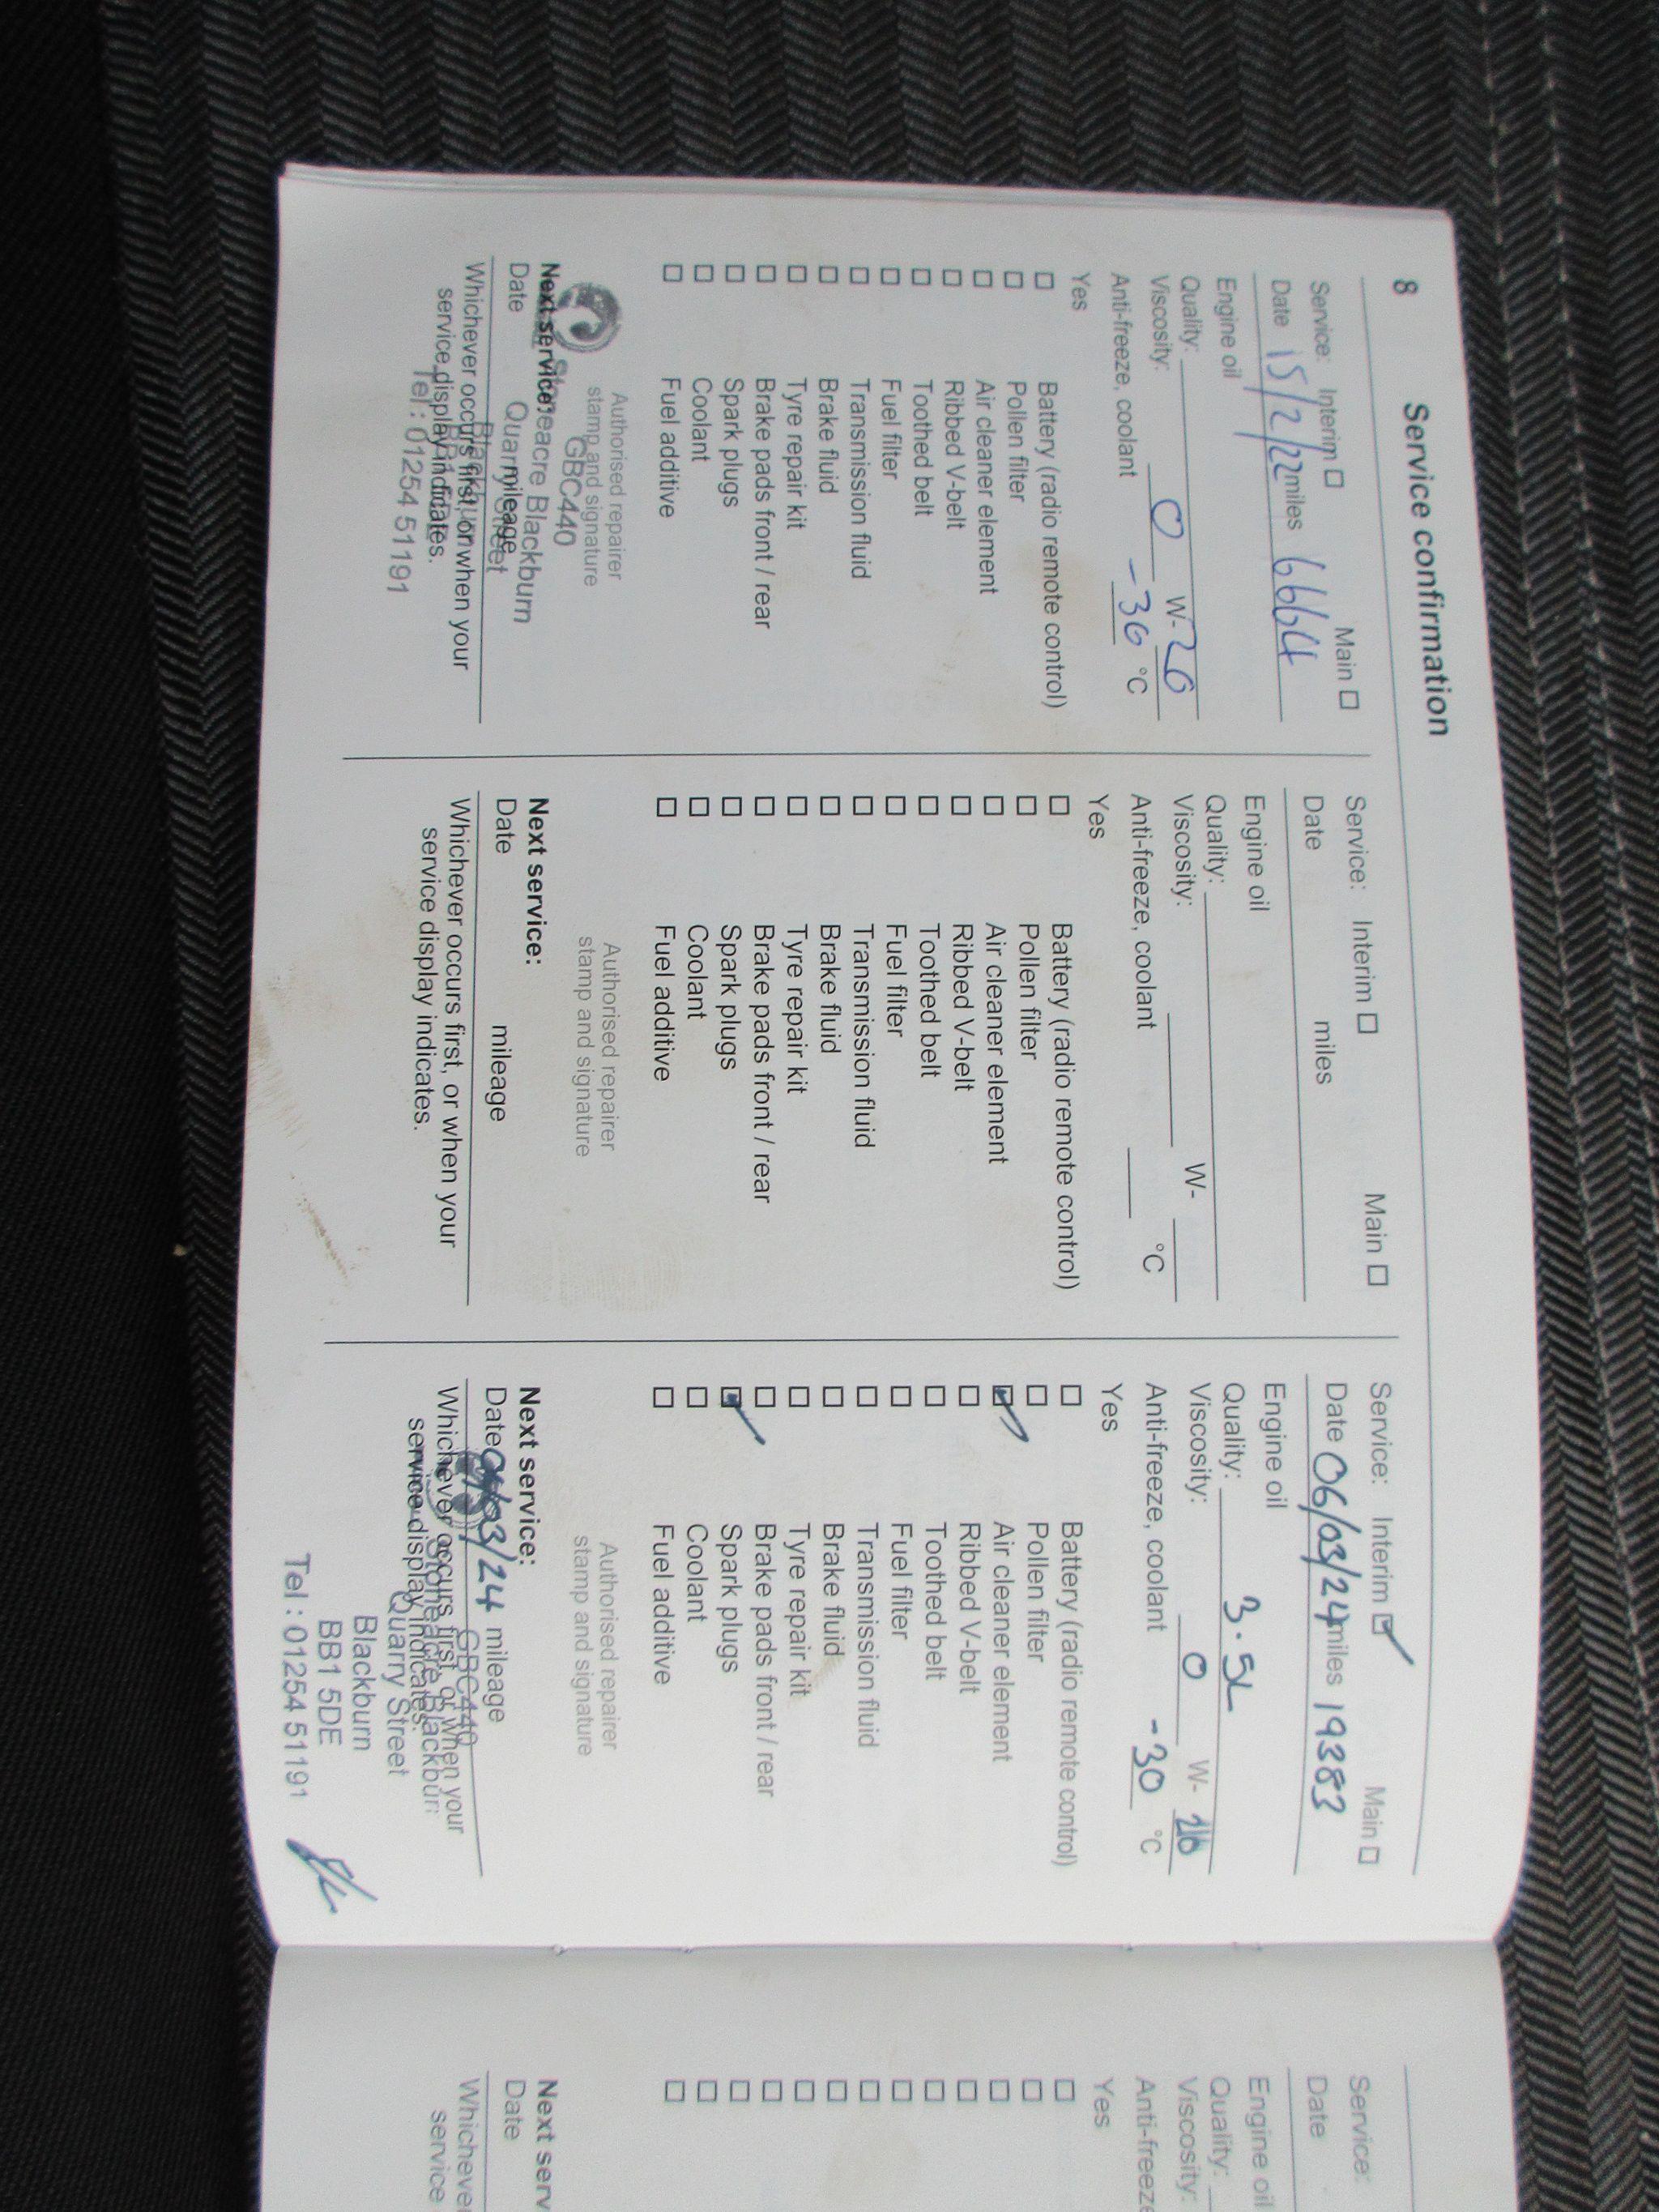 8 Service confirmation
Service: Interim ☐ Main ☐
Date 15/2/22 miles 6664
Engine oil
Quality:
Viscosity: 0 W-20
Anti-freeze, coolant -36 °C
Yes
☐ Battery (radio remote control)
☐ Pollen filter
☐ Air cleaner element
☐ Ribbed V-belt
☐ Toothed belt
☐ Fuel filter
☐ Transmission fluid
☐ Brake fluid
☐ Tyre repair kit
☐ Brake pads front / rear
☐ Spark plugs
☐ Coolant
☐ Fuel additive
Authorised repairer
stamp and signature
GBC440
Stoneacre Blackburn
Next service:
Quarry Street
Date mileage
Blackburn
Whichever occurs first, or when your
BB1 5DE
service display indicates.
Tel : 01254 51191
Service: Interim ☐ Main ☐
Date miles
Engine oil
Quality:
Viscosity: W-
Anti-freeze, coolant °C
Yes
☐ Battery (radio remote control)
☐ Pollen filter
☐ Air cleaner element
☐ Ribbed V-belt
☐ Toothed belt
☐ Fuel filter
☐ Transmission fluid
☐ Brake fluid
☐ Tyre repair kit
☐ Brake pads front / rear
☐ Spark plugs
☐ Coolant
☐ Fuel additive
Authorised repairer
stamp and signature
Next service:
Date mileage
Whichever occurs first, or when your
service display indicates.
Service: Interim ☑ Main ☐
Date 06/03/24 miles 19383
Engine oil
Quality: 3.5L
Viscosity: 0 W-
Anti-freeze, coolant -30 °C
Yes
☐ Battery (radio remote control)
☐ Pollen filter
☑ Air cleaner element
☐ Ribbed V-belt
☐ Toothed belt
☐ Fuel filter
☐ Transmission fluid
☐ Brake fluid
☐ Tyre repair kit
☐ Brake pads front / rear
☑ Spark plugs
☐ Coolant
☐ Fuel additive
Authorised repairer
stamp and signature
Next service:
Date /03/24 mileage
GBC440
Whichever occurs first, or when your
Stoneacre Blackburn
service display indicates.
Quarry Street
Blackburn
BB1 5DE
Tel : 01254 51191
Service:
Date
Engine oil
Quality:
Viscosity:
Anti-freeze
Yes
☐
☐
☐
☐
☐
☐
☐
☐
☐
☐
☐
☐
☐
Next serv
Date
Whichever
service